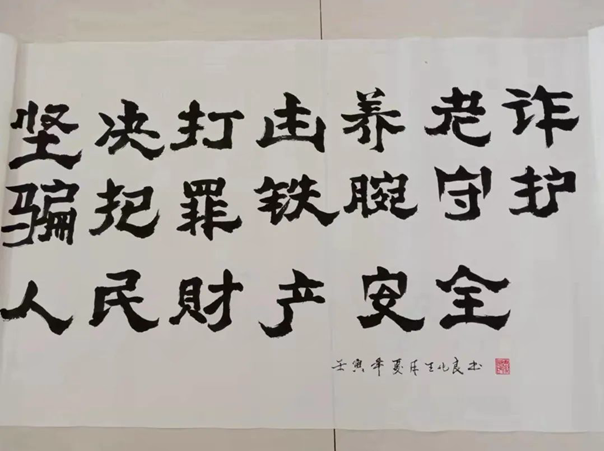 坚决打击养老诈
骗犯罪铁腕守护
人民財产安全
壬寅年夏化良书